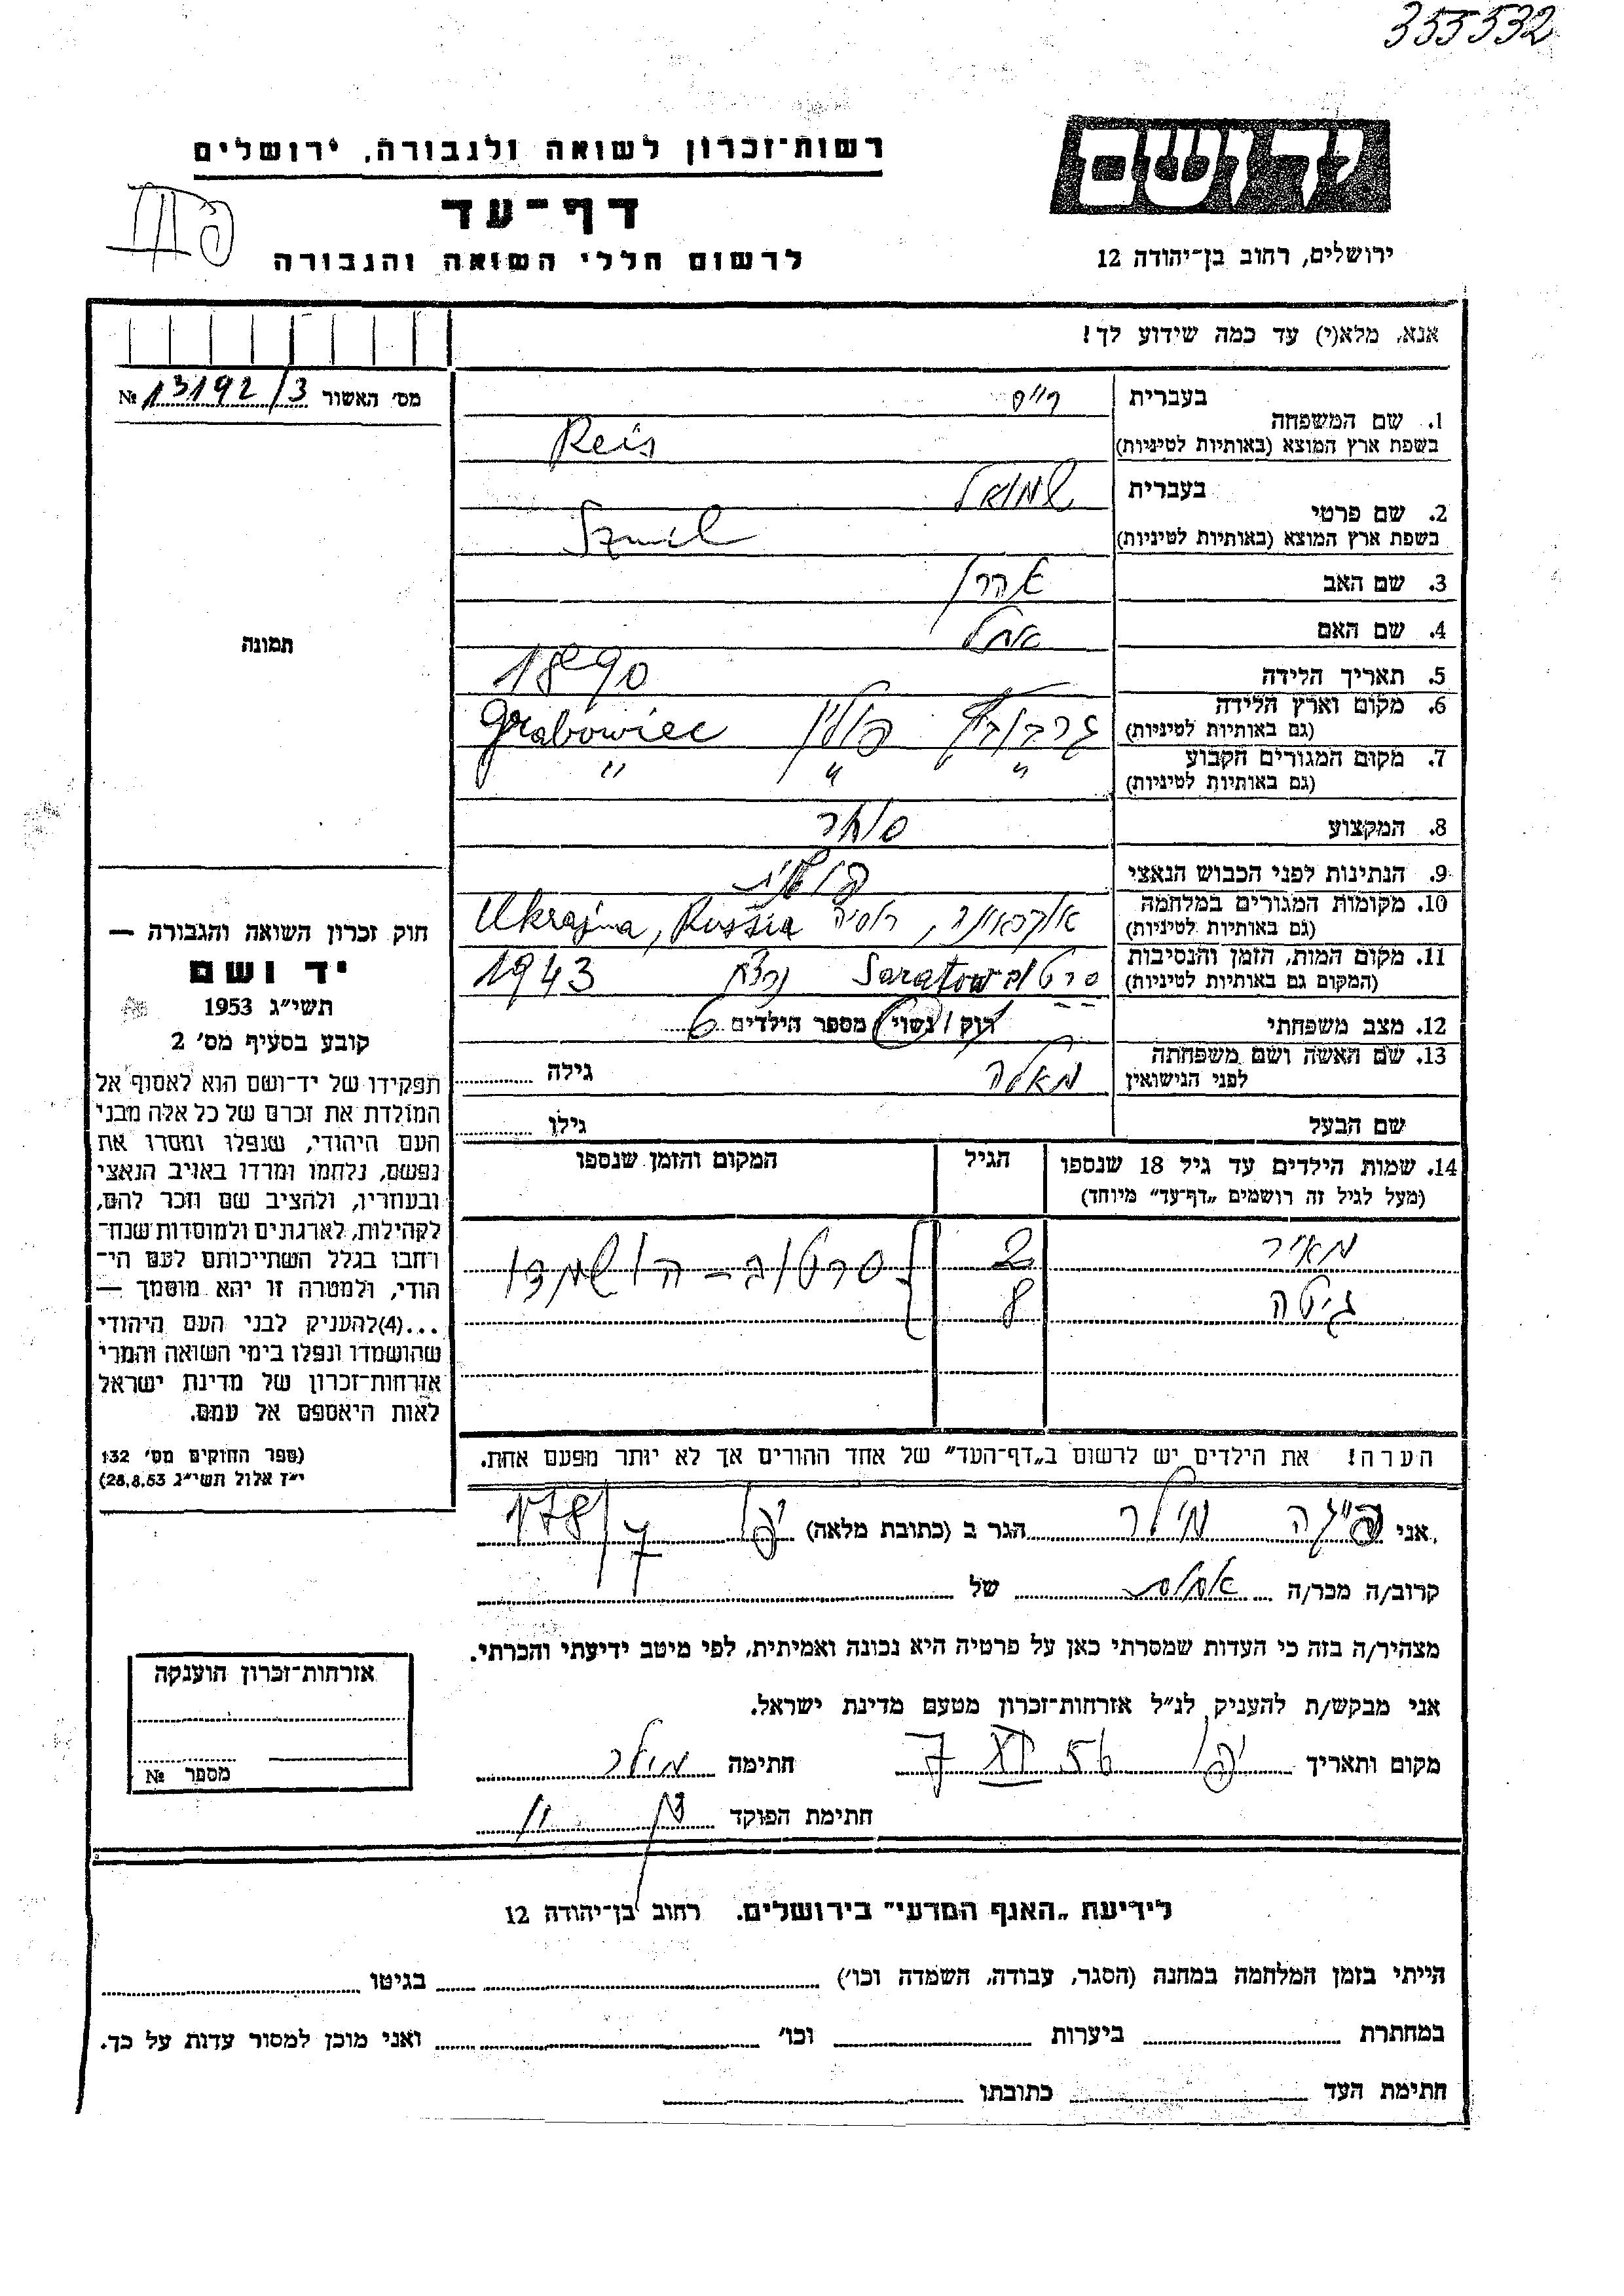 355532
יד ושם
ירושלים, רחוב בן־יהודה 12
רשות־זכרון לשואה ולגבורה, ירושלים
דף־עד
לרשום חללי השואה והגבורה
אנא, מלא(י) עד כמה שידוע לך!
מס׳ האשור 13192/3 №
תמונה
בעברית רייס
1. שם המשפחה
בשפת ארץ המוצא (באותיות לטיניות) Reis
בעברית שמואל
2. שם פרטי
בשפת ארץ המוצא (באותיות לטיניות) Szmil
3. שם האב אהרן
4. שם האם
5. תאריך הלידה 1890
6. מקום וארץ הלידה
(גם באותיות לטיניות) פולין Grabowiec
7. מקום המגורים הקבוע
(גם באותיות לטיניות) " " "
8. המקצוע סוחר
9. הנתינות לפני הכבוש הנאצי
10. מקומות המגורים במלחמה
(גם באותיות לטיניות) רוסיה Ukrajna, Russia
11. מקום המות, הזמן והנסיבות
(המקום גם באותיות לטיניות) Saratow נרצח 1943
12. מצב משפחתי רוק / נשוי מספר הילדים 6
13. שם האשה ושם משפחתה
לפני הנישואין גילה
שם הבעל גילו
14. שמות הילדים עד גיל 18 שנספו הגיל המקום והזמן שנספו
(מעל לגיל זה רושמים „דף־עד״ מיוחד)
מאיר 2 סרטוב - הושמדו
גיטה 8
הערה! את הילדים יש לרשום ב„דף־העד״ של אחד ההורים אך לא יותר מפעם אחת.
אני פייגה מילר הגר ב (כתובת מלאה) יפו 178/7
קרוב/ה מכר/ה של
מצהיר/ה בזה כי העדות שמסרתי כאן על פרטיה היא נכונה ואמיתית, לפי מיטב ידיעתי והכרתי.
אני מבקש/ת להעניק לנ״ל אזרחות־זכרון מטעם מדינת ישראל.
מקום ותאריך יפו 7 XI 56 חתימה מילר
חתימת הפוקד
חוק זכרון השואה והגבורה —
יד ושם
תשי״ג 1953
קובע בסעיף מס׳ 2
תפקידו של יד־ושם הוא לאסוף אל
המולדת את זכרם של כל אלה מבני
העם היהודי, שנפלו ומסרו את
נפשם, נלחמו ומרדו באויב הנאצי
ובעוזריו, ולהציב שם וזכר להם,
לקהילות, לארגונים ולמוסדות שנח־
רחבו בגלל השתייכותם לעם הי־
הודי, ולמטרה זו יהא מוסמך —
...(4)להעניק לבני העם היהודי
שהושמדו ונפלו בימי השואה והמרי
אזרחות־זכרון של מדינת ישראל
לאות היאספם אל עמם.
(ספר החוקים מס׳ 132
י״ז אלול תשי״ג 28.8.53)
אזרחות־זכרון הוענקה
מספר №
לידיעת „האגף המדעי״ בירושלים. רחוב בן־יהודה 12
הייתי בזמן המלחמה במחנה (הסגר, עבודה, השמדה וכו׳) בגיטו
במחתרת ביערות וכו׳ ואני מוכן למסור עדות על כך.
חתימת העד כתובתו